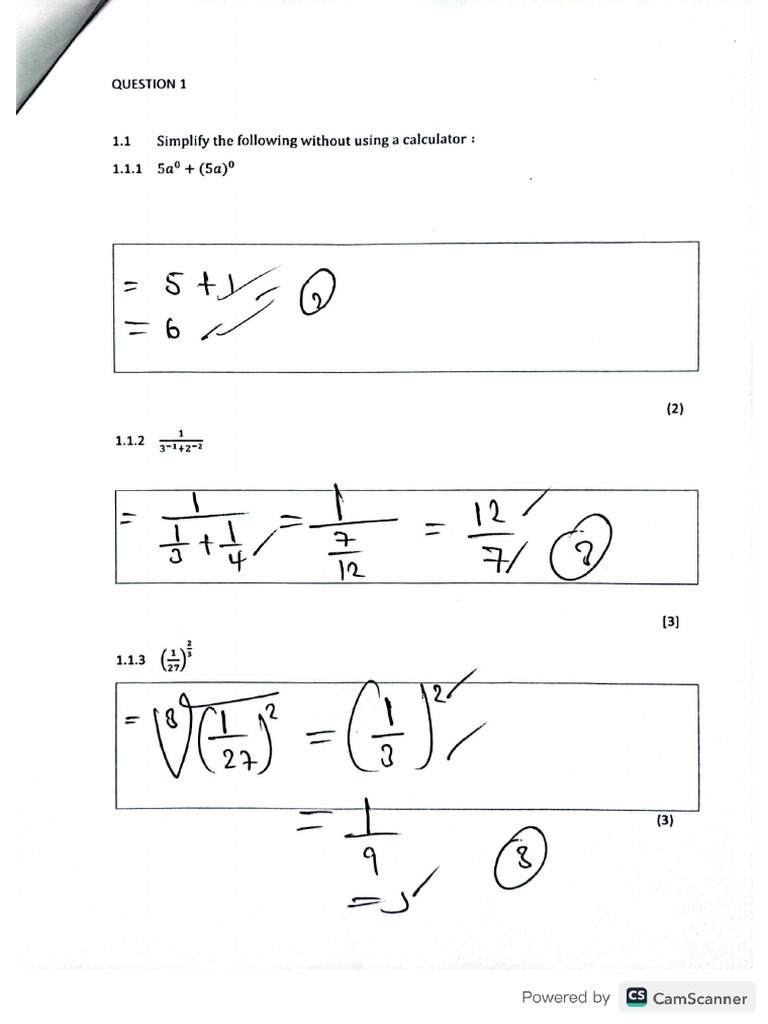 QUESTION 1
1.1 Simplify the following without using a calculator :
1.1.1 5a⁰ + (5a)⁰
= 5 + 1
= 6
2
(2)
1.1.2 1/(3⁻¹+2⁻²)
= 1/(1/3 + 1/4) = 1/(7/12) = 12/7
3
[3]
1.1.3 (1/27)^(2/3)
= ∛(1/27)² = (1/3)²
= 1/9
(3)
3
Powered by CS CamScanner